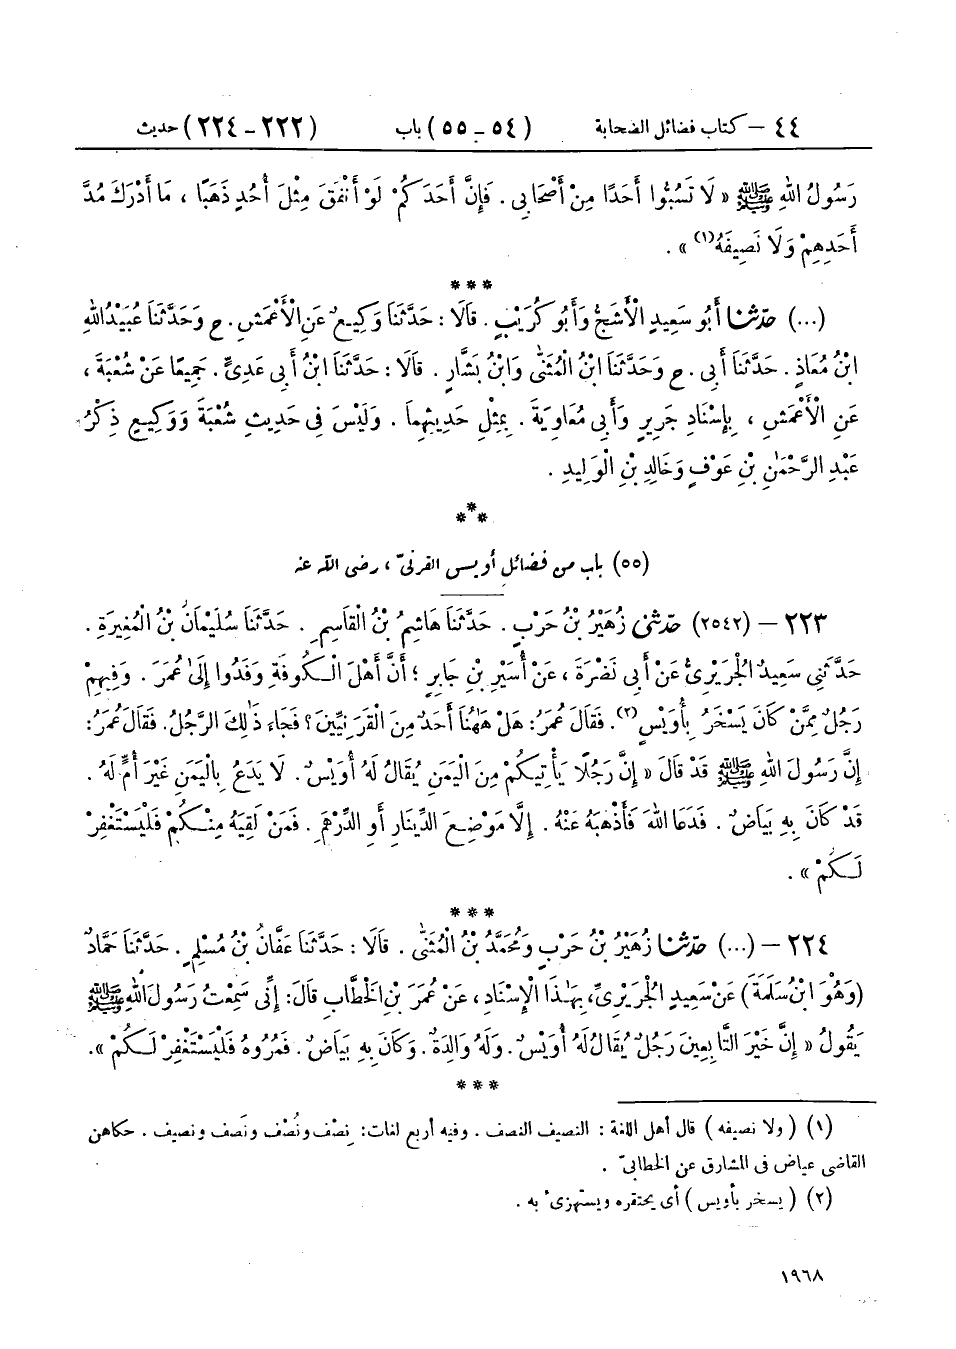 ٤٤ – كتاب فضائل الصحابة (٥٤ – ٥٥) باب (٢٢٢ – ٢٢٤) حديث
رَسُولُ اللهِ ﷺ « لَا تَسُبُّوا أَحَدًا مِنْ أَصْحَابِي . فَإِنَّ أَحَدَكُمْ لَوْ أَنْفَقَ مِثْلَ أُحُدٍ ذَهَبًا ، مَا أَدْرَكَ مُدَّ
أَحَدِهِمْ وَلَا نَصِيفَهُ(١) » .
***
(...) حَدَّثَنَا أَبُو سَعِيدٍ الْأَشَجُّ وَأَبُو كُرَيْبٍ . قَالَا : حَدَّثَنَا وَكِيعٌ عَنِ الْأَعْمَشِ . ح وَحَدَّثَنَا عُبَيْدُ اللهِ
ابْنُ مُعَاذٍ . حَدَّثَنَا أَبِي . ح وَحَدَّثَنَا ابْنُ الْمُثَنَّى وَابْنُ بَشَّارٍ . قَالَا : حَدَّثَنَا ابْنُ أَبِي عَدِيٍّ . جَمِيعًا عَنْ شُعْبَةَ ،
عَنِ الْأَعْمَشِ ، بِإِسْنَادِ جَرِيرٍ وَأَبِي مُعَاوِيَةَ . بِمِثْلِ حَدِيثِهِمَا . وَلَيْسَ فِي حَدِيثِ شُعْبَةَ وَوَكِيعٍ ذِكْرُ
عَبْدِ الرَّحْمَٰنِ بْنِ عَوْفٍ وَخَالِدِ بْنِ الْوَلِيدِ .
***
(٥٥) باب من فضائل أويس القرنيّ ، رضى الله عنه
٢٢٣ – (٢٥٤٢) حَدَّثَنِي زُهَيْرُ بْنُ حَرْبٍ . حَدَّثَنَا هَاشِمُ بْنُ الْقَاسِمِ . حَدَّثَنَا سُلَيْمَانُ بْنُ الْمُغِيرَةِ .
حَدَّثَنِي سَعِيدٌ الْجُرَيْرِيُّ عَنْ أَبِي نَضْرَةَ ، عَنْ أُسَيْرِ بْنِ جَابِرٍ ؛ أَنَّ أَهْلَ الْكُوفَةِ وَفَدُوا إِلَى عُمَرَ . وَفِيهِمْ
رَجُلٌ مِمَّنْ كَانَ يَسْخَرُ بِأُوَيْسٍ(٢) . فَقَالَ عُمَرُ : هَلْ هَٰهُنَا أَحَدٌ مِنَ الْقَرَنِيِّينَ ؟ فَجَاءَ ذَٰلِكَ الرَّجُلُ . فَقَالَ عُمَرُ :
إِنَّ رَسُولَ اللهِ ﷺ قَدْ قَالَ « إِنَّ رَجُلًا يَأْتِيكُمْ مِنَ الْيَمَنِ يُقَالُ لَهُ أُوَيْسٌ . لَا يَدَعُ بِالْيَمَنِ غَيْرَ أُمٍّ لَهُ .
قَدْ كَانَ بِهِ بَيَاضٌ . فَدَعَا اللهَ فَأَذْهَبَهُ عَنْهُ . إِلَّا مَوْضِعَ الدِّينَارِ أَوِ الدِّرْهَمِ . فَمَنْ لَقِيَهُ مِنْكُمْ فَلْيَسْتَغْفِرْ
لَكُمْ » .
***
٢٢٤ – (...) حَدَّثَنَا زُهَيْرُ بْنُ حَرْبٍ وَمُحَمَّدُ بْنُ الْمُثَنَّى . قَالَا : حَدَّثَنَا عَفَّانُ بْنُ مُسْلِمٍ . حَدَّثَنَا حَمَّادٌ
(وَهُوَ ابْنُ سَلَمَةَ) عَنْ سَعِيدٍ الْجُرَيْرِيِّ ، بِهَٰذَا الْإِسْنَادِ ، عَنْ عُمَرَ بْنِ الْخَطَّابِ قَالَ : إِنِّي سَمِعْتُ رَسُولَ اللهِ ﷺ
يَقُولُ « إِنَّ خَيْرَ التَّابِعِينَ رَجُلٌ يُقَالُ لَهُ أُوَيْسٌ . وَلَهُ وَالِدَةٌ . وَكَانَ بِهِ بَيَاضٌ . فَمُرُوهُ فَلْيَسْتَغْفِرْ لَكُمْ » .
***
(١) ( ولا نصيفه ) قال أهل اللغة : النصيف النصف . وفيه أربع لغات : نِصْف ونُصْف ونَصف ونصيف . حكاهن
القاضى عياض فى المشارق عن الخطابيّ .
(٢) ( يسخر بأويس ) أى يحتقره ويستهزئ به .
١٩٦٨